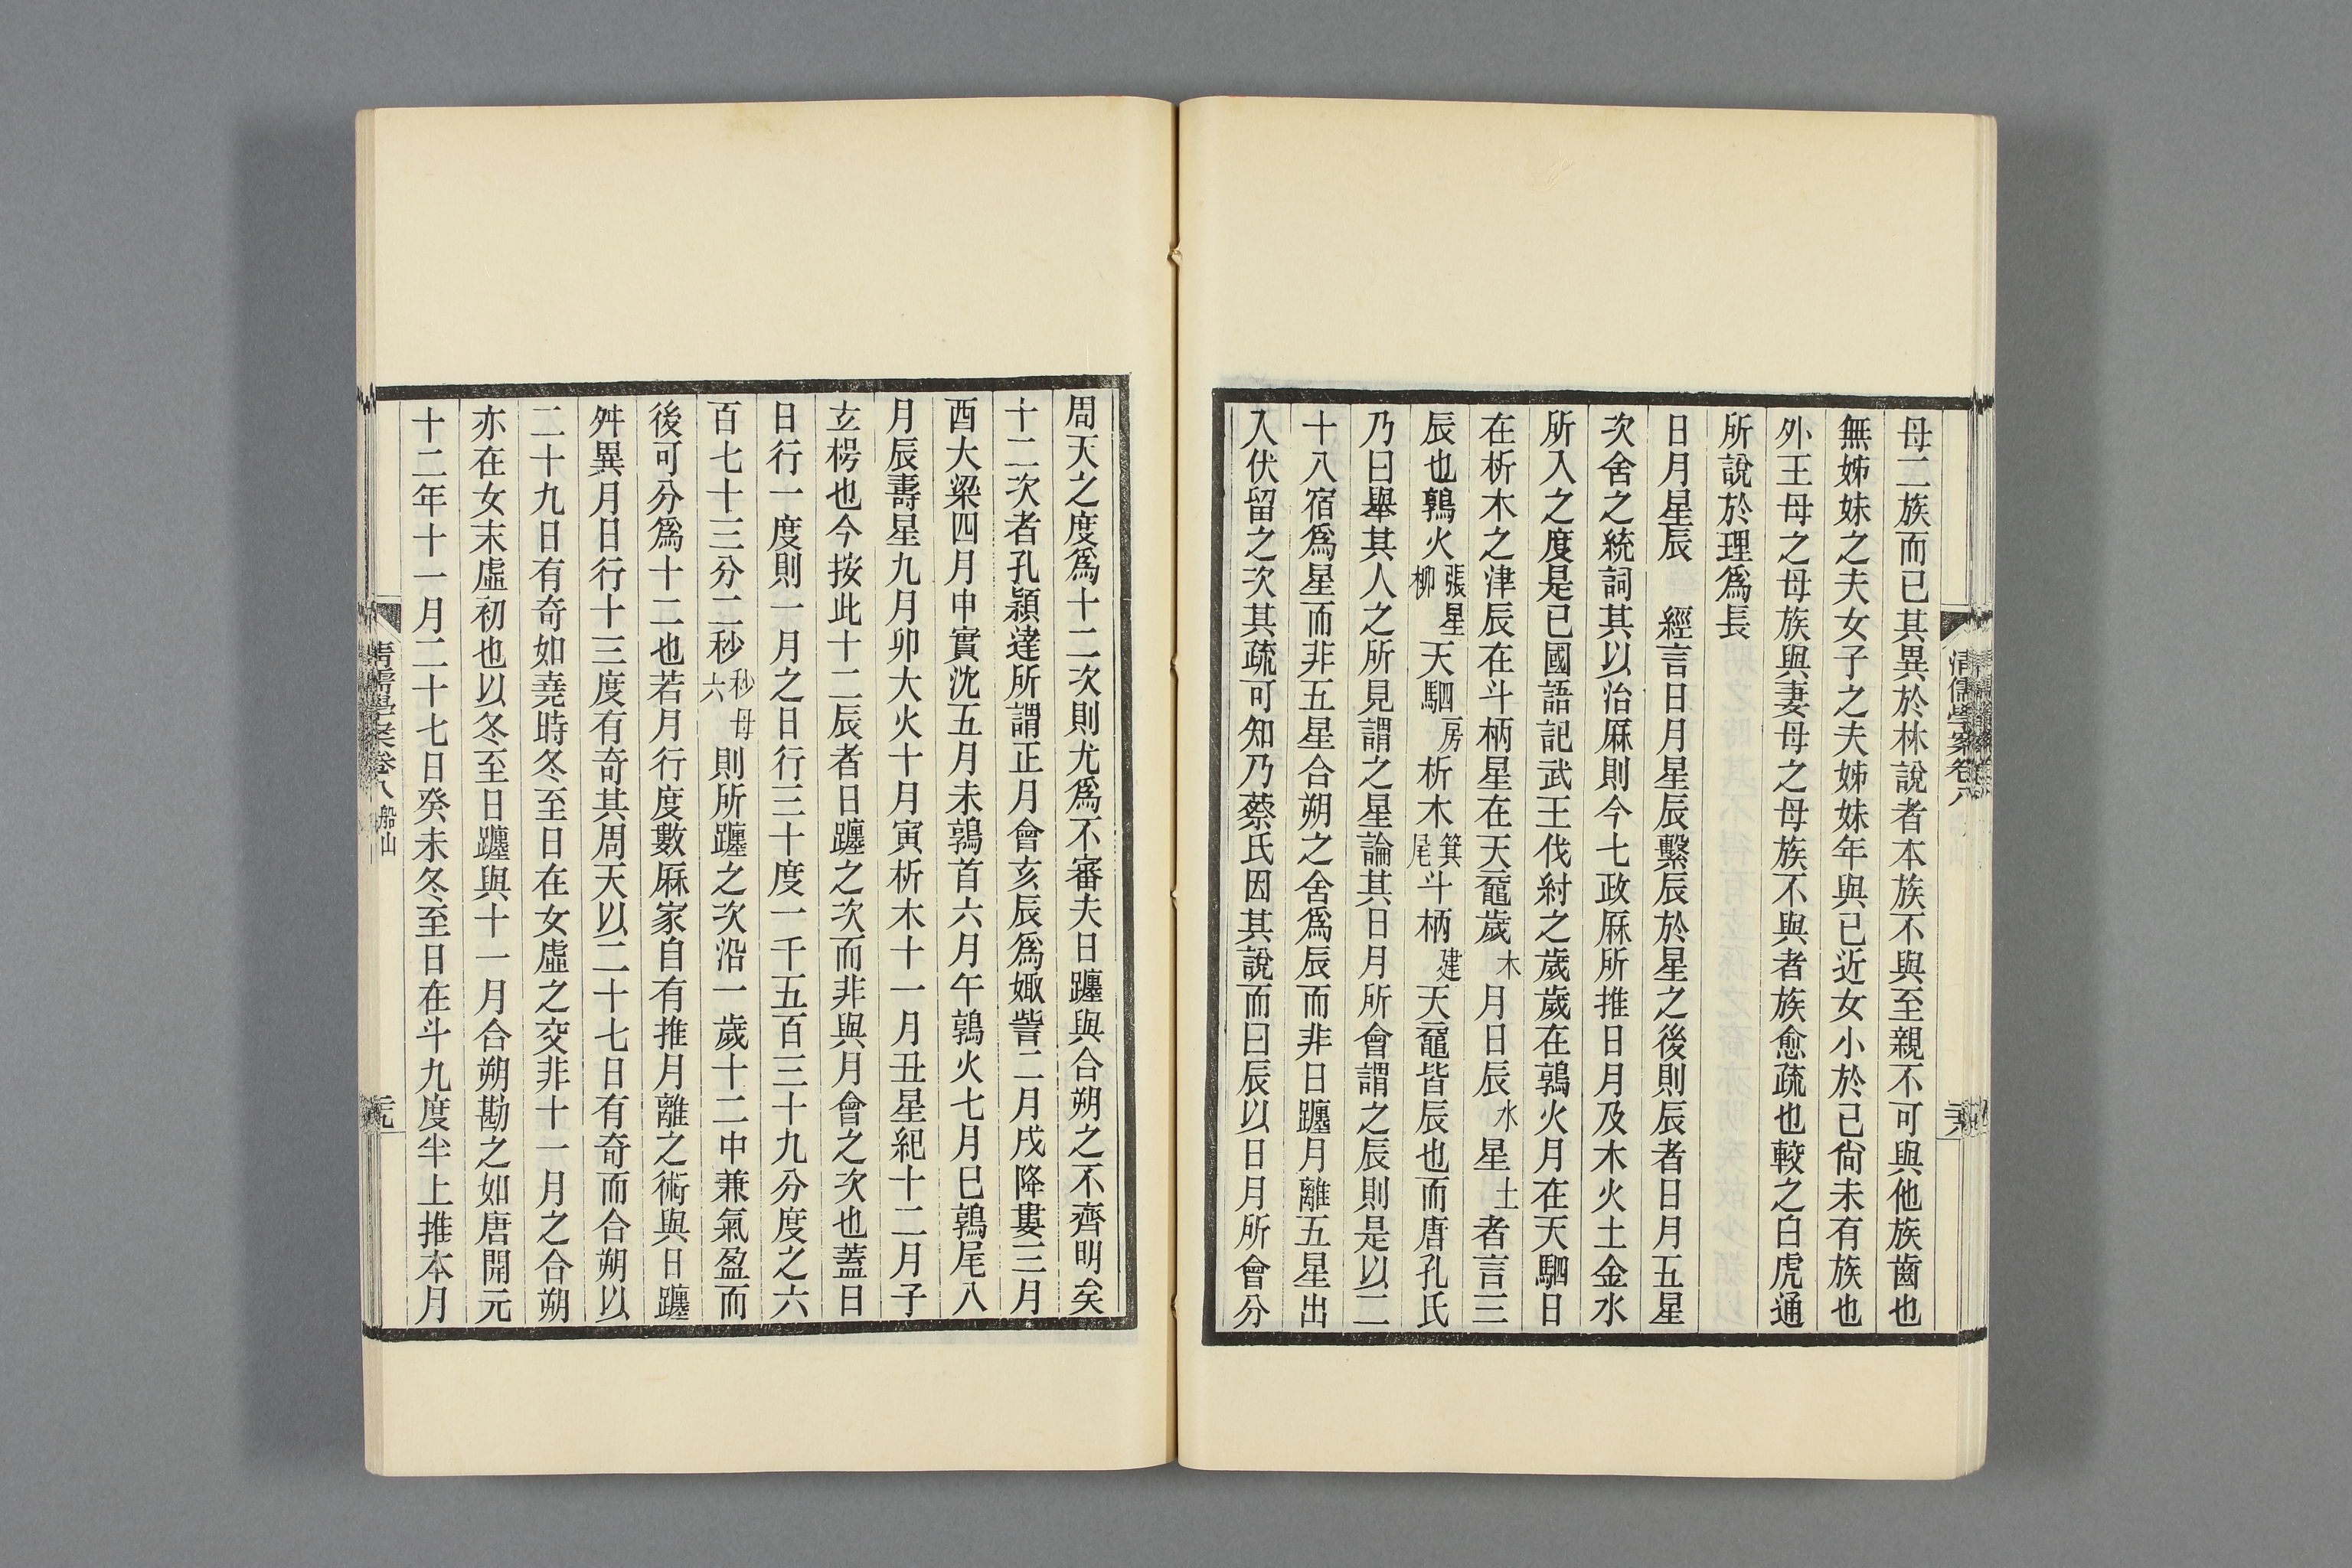 母二族而已其異於林說者本族不與至親不可與他族齒也
無姊妹之夫女子之夫姊妹年與已近女小於已尙未有族也
外王母之母族與妻母之母族不與者族愈疏也較之白虎通
所說於理爲長
日月星辰　經言日月星辰繫辰於星之後則辰者日月五星
次舍之統詞其以治厤則今七政厤所推日月及木火土金水
所入之度是已國語記武王伐紂之歲歲在鶉火月在天駟日
在析木之津辰在斗柄星在天黿歲木月日辰水星土者言三
辰也鶉火張星柳天駟房析木箕尾斗柄建天黿皆辰也而唐孔氏
乃曰舉其人之所見謂之星論其日月所會謂之辰則是以二
十八宿爲星而非五星合朔之舍爲辰而非日躔月離五星出
入伏留之次其疏可知乃蔡氏因其說而曰辰以日月所會分
清儒學案卷八
周天之度爲十二次則尤爲不審夫日躔與合朔之不齊明矣
十二次者孔穎達所謂正月會亥辰爲娵訾二月戌降婁三月
酉大梁四月申實沈五月未鶉首六月午鶉火七月巳鶉尾八
月辰壽星九月卯大火十月寅析木十一月丑星紀十二月子
玄枵也今按此十二辰者日躔之次而非與月會之次也蓋日
日行一度則一月之日行三十度一千五百三十九分度之六
百七十三分二秒秒母六則所躔之次沿一歲十二中兼氣盈而
後可分爲十二也若月行度數厤家自有推月離之術與日躔
舛異月日行十三度有奇其周天以二十七日有奇而合朔以
二十九日有奇如堯時冬至日在女虛之交非十一月之合朔
亦在女末虛初也以冬至日躔與十一月合朔勘之如唐開元
十二年十一月二十七日癸未冬至日在斗九度半上推本月
清儒學案卷八 船山